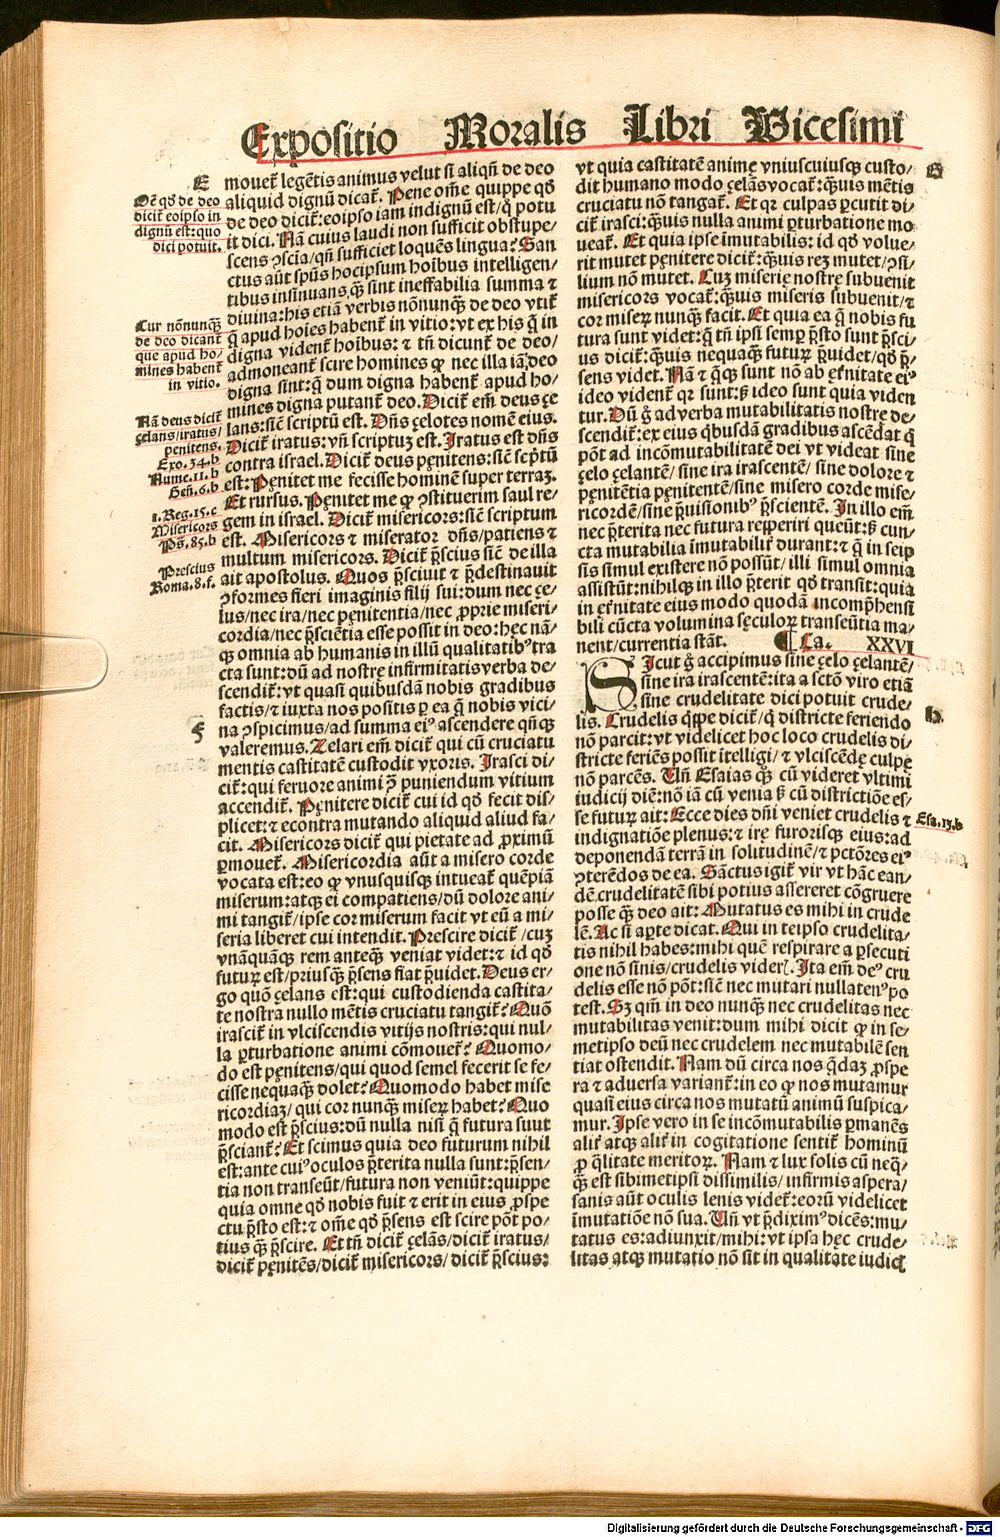 Expositio Moralis Libri Vicesimi
E
Oē qď de deo
dicit̄ eoipso in
dignū est: quo
dici potuit.
Cur nōnunꝗ̄
de deo dicant̄
que apud ho/
mines habent̄
in vitio.
Nā deus dicit̄
çelans/iratus/
penitens.
Exo.34.b
Nume.11.b
Geñ.6.b
1.Reg.15.c
Misericors
Pš.85.b
Prescius
Roma.8.f.
F
mouet̄ legētis animus velut si aliqñ de deo
aliquid dignū dicat̄. Pene om̄e quippe qď
de deo dicit̄: eoipso iam indignū est/ꝗ potu
it dici. Nā cuius laudi non sufficit obstupe/
scens ↄscia/qñ sufficiet loquēs lingua? San
ctus aūt spūs hocipsum hoībus intelligen/
tibus insinuans, ꝗ̄ sint ineffabilia summa ⁊
diuina: his etiā verbis nōnunꝗ̄ de deo vtit̄
ꝗ apud hoīes habent̄ in vitio: vt ex his ꝗ̄ in
digna vident̄ hoībus: ⁊ tñ dicunt̄ de deo/
admoneant̄ scire homines ꝙ nec illa iā deo
digna sint: ꝗ̄ dum digna habent̄ apud ho/
mines digna putant̄ deo. Dicit̄ em̄ deus çe
lans: siē scriptū est. Dñs çelotes nomē eius.
Dicit̄ iratus: vñ scriptuꝫ est. Iratus est dñs
contra israel. Dicit̄ deus pęnitens: siē scp̄tū
est: Pęnitet me fecisse hominē super terraꝫ.
Et rursus. Pęnitet me ꝙ ↄstituerim saul re/
gem in israel. Dicit̄ misericors: siē scriptum
est. Misericors ⁊ miserator dñs/patiens ⁊
multum misericors. Dicit̄ p̄scius siē de illa
ait apostolus. Quos p̄sciuit ⁊ p̄destinauit
ↄformes fieri imaginis filij sui: dum nec çe/
lus/nec ira/nec pęnitentia/nec ꝓprie miseri/
cordia/nec p̄sciētia esse possit in deo: hęc nā/
ꝗ omnia ab humanis in illū qualitatibꝰ tra
cta sunt: dū ad nostrę infirmitatis verba de/
scendit̄: vt quasi quibusdā nobis gradibus
factis/⁊ iuxta nos positis ꝑ ea ꝗ̄ nobis vici/
na ↄspicimus/ad summa eiꝰ ascendere qñꝗꝫ
valeremus. Zelari em̄ dicit̄ qui cū cruciatu
mentis castitatē custodit vxoris. Irasci di/
cit̄: qui feruore animi ↄ̄ puniendum vitium
accendit̄. Pęnitere dicit̄ cui id qď fecit dis/
plicet: ⁊ econtra mutando aliquid aliud fa/
cit. Misericors dicit̄ qui pietate ad ꝓximū
ꝑmouet̄. Misericordia aūt a misero corde
vocata est: eo ꝙ vnusquisꝗꝫ intueat̄ quēpiā
miserum: atꝗꝫ ei compatiens/dū dolore ani/
mi tangit̄/ipse cor miserum facit vt eū a mi/
seria liberet cui intendit. Prescire dicit̄ /cuꝫ
vnāquāꝗꝫ rem anteꝗ̄ veniat videt: ⁊ id qď
futurꝝ est/priusꝗ̄ p̄sens fiat p̄uidet. Deus er/
go quō çelans est: qui custodienda castita/
te nostra nullo mētis cruciatu tangit̄? Quō
irascit̄ in vlciscendis vitijs nostris: qui nul/
la ꝑturbatione animi cōmouet̄? Quomo/
do est pęnitens/qui quod semel fecerit se fe/
cisse nequaꝗ̄ dolet? Quomodo habet mise
ricordiaꝫ/ qui cor nunꝗ̄ miserꝝ habet? Quo
modo est p̄scius: dū nulla nisi ꝗ̄ futura sunt
p̄sciant̄? Et scimus quia deo futurum nihil
est: ante cuiꝰ oculos p̄terita nulla sunt: p̄sen/
tia non transeūt/futura non veniūt: quippe
quia omne qď nobis fuit ⁊ erit in eius ꝓspe
ctu p̄sto est: ⁊ om̄e qď p̄sens est scire pōt po/
tius ꝗ̄ p̄scire. Et tñ dicit̄ çelās/dicit̄ iratus/
dicit̄ pęnitēs/dicit̄ misericors/ dicit̄ p̄scius:
vt quia castitatē animę vniuscuiusꝗꝫ custo/
dit humano modo çelās vocat̄: ꝗ̄uis mētis
cruciatu nō tangat̄. Et qꝛ culpas ꝑcutit di/
cit̄ irasci: ꝗ̄uis nulla animi ꝑturbatione mo
ueat̄. Et quia ipse īmutabilis: id qď volue/
rit mutet pęnitere dicit̄: ꝗ̄uis reꝫ mutet/ↄsi/
lium nō mutet. Cuꝫ miserię nostrę subuenit
misericors vocat̄: ꝗ̄uis miseris subuenit/⁊
cor miserꝝ nunꝗ̄ facit. Et quia ea ꝗ̄ nobis fu
tura sunt videt: ꝗ̄ tñ ipsi semꝑ p̄sto sunt p̄sci/
us dicit̄: ꝗ̄uis nequaꝗ̄ futurꝝ p̄uidet/qď p̄/
sens videt. Nā ⁊ ꝗ̄ꝗꝫ sunt nō ab ęt̄nitate eiꝰ
ideo vident̄ qꝛ sunt: sꝫ ideo sunt quia viden
tur. Dū ǧ ad verba mutabilitatis nostrę de/
scendit̄: ex eius ꝗbusdā gradibus ascēdat ꝗ
pōt ad incōmutabilitatē dei vt videat sine
çelo çelantē/ sine ira irascentē/ sine dolore ⁊
pęnitētia pęnitentē/sine misero corde mise/
ricordē/sine p̄uisionibꝰ p̄scientē. In illo em̄
nec p̄terita nec futura reꝑeriri queūt: sꝫ cun/
cta mutabilia īmutabilit̄ durant: ⁊ ꝗ̄ in seip
sis simul existere nō possūt/ illi simul omnia
assistūt: nihilꝗꝫ in illo p̄terit qď transit: quia
in ęt̄nitate eius modo quodā incomp̄hensi
bili cūcta volumina sęculoꝝ transeūtia ma/
nent/currentia stāt. ¶ Ca. XXVI
SIcut ǧ accipimus sine çelo çelantē/
sine ira irascentē: ita a sctō viro etiā
sine crudelitate dici potuit crude/
lis. Crudelis ꝗppe dicit̄/ꝗ districte feriendo
nō parcit: vt videlicet hoc loco crudelis di/
stricte feriēs possit ītelligi/ ⁊ vlciscēdę culpę
nō parcēs. Uñ Esaias ꝗꝫ cū videret vltimi
iudicij diē: nō iā cū venia sꝫ cū districtiōe es/
se futurꝝ ait: Ecce dies dñi veniet crudelis ⁊
indignatiōe plenus: ⁊ irę furorisꝗꝫ eius: ad
deponendā terrā in solitudinē/⁊ pctōres eiꝰ
ↄterēdos de ea. Sāctus igit̄ vir vt hāc ean/
dē crudelitatē sibi potius assereret cōgruere
posse ꝗ̄ deo ait: Mutatus es mihi in crude
lē. Ac si aꝑte dicat. Qui in teipso crudelita/
tis nihil habes: mihi quē respirare a ꝑsecuti
one nō sinis/crudelis videris. Ita em̄ deꝰ cru
delis esse nō pōt: siē nec mutari nullatenꝰ po
test. Sꝫ qm̄ in deo nunꝗ̄ nec crudelitas nec
mutabilitas venit: dum mihi dicit ꝙ in se/
metipso deū nec crudelem nec mutabilē sen
tiat ostendit. Nam dū circa nos ꝗ̄daꝫ ꝓspe
ra ⁊ aduersa variant̄: in eo ꝙ nos mutamur
quasi eius circa nos mutatū animū suspica/
mur. Ipse vero in se incōmutabilis ꝑmanēs
alit̄ atꝗꝫ alit̄ in cogitatione sentit̄ hominū
ꝓ ꝗ̄litate meritoꝝ. Nam ⁊ lux solis cū neꝗ̄/
ꝗ̄ est sibimetipsi dissimilis/ infirmis aspera/
sanis aūt oculis lenis videt̄: eorū videlicet
īmutatiōe nō sua. Uñ vt p̄diximꝰ dicēs: mu/
tatus es: adiunxit/mihi: vt ipsa hęc crude/
litas atꝗꝫ mutatio nō sit in qualitate iudicis
G
H
Esa.13.b
Digitalisierung gefördert durch die Deutsche Forschungsgemeinschaft - DFG